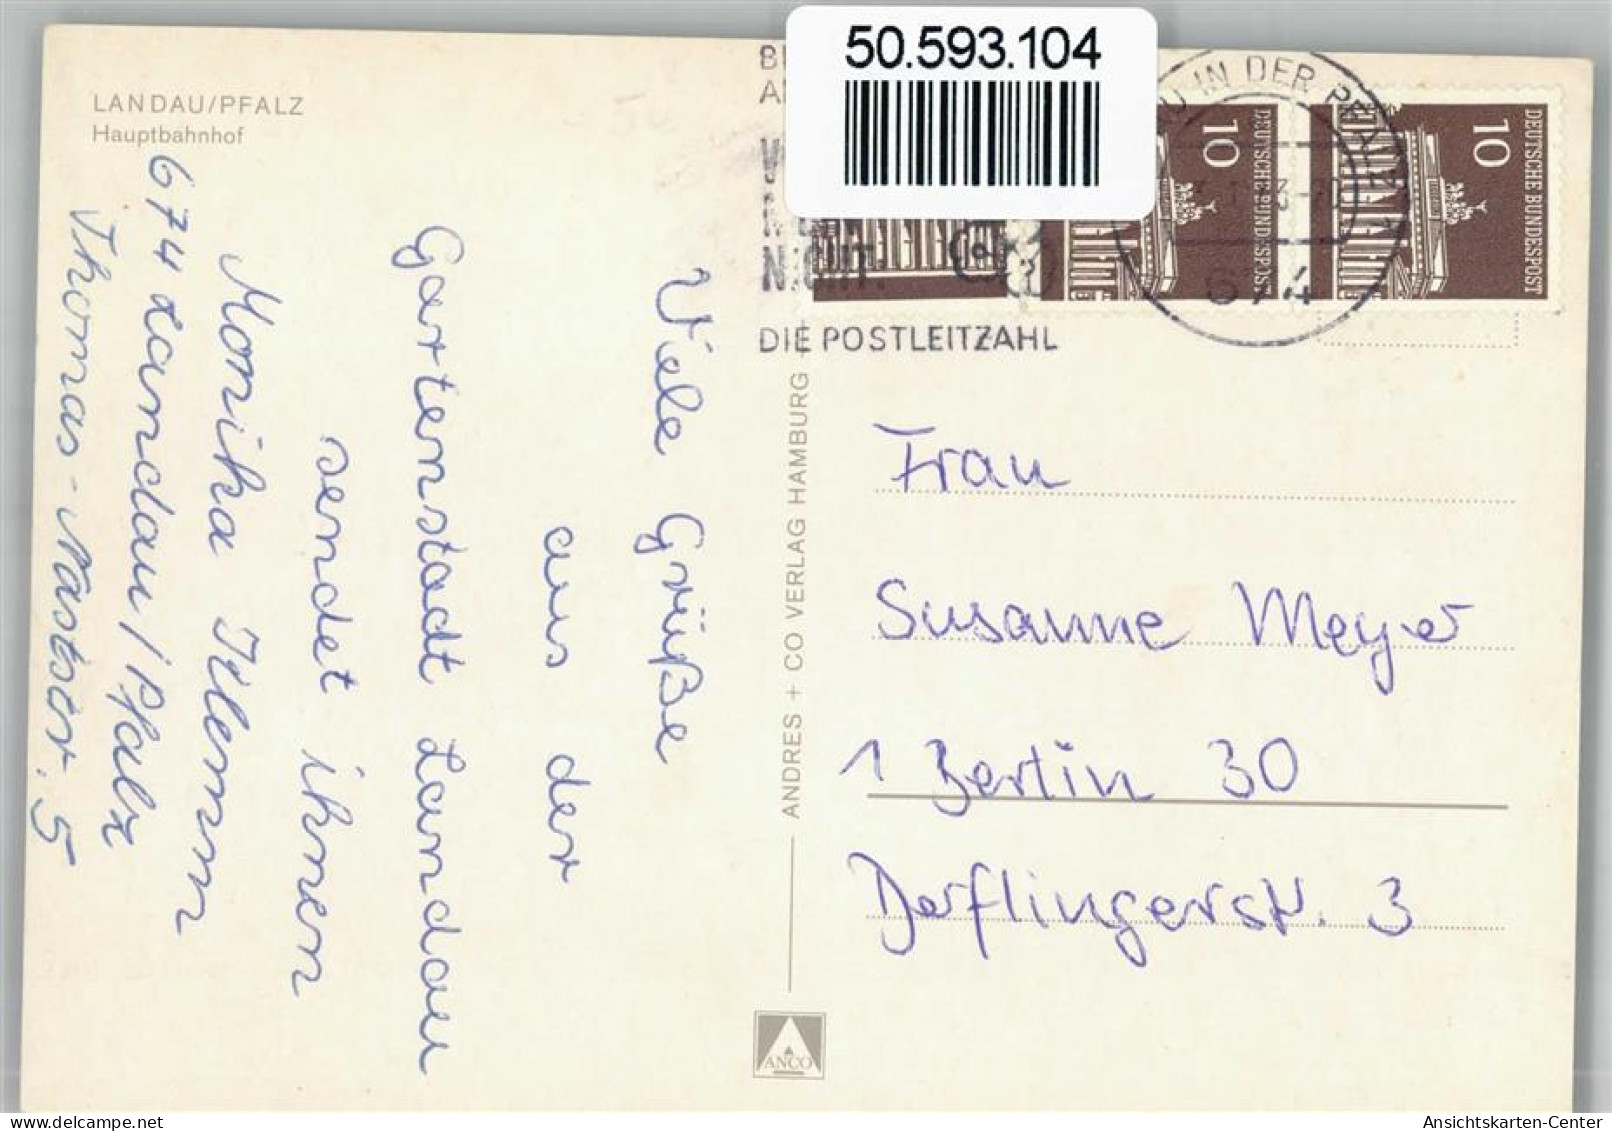 50.593.104
LANDAU/PFALZ
Hauptbahnhof
NICHT:
DIE POSTLEITZAHL
IN DER PFALZ
674
10
DEUTSCHE BUNDESPOST
10
DEUTSCHE BUNDESPOST
Viele Grüße
aus der
Gartenstadt Landau
sendet ihnen
Monika Klemm
674 Landau / Pfalz
Thomas-Naststr. 5
ANDRES + CO VERLAG HAMBURG
ANCO
Frau
Susanne Meyer
1 Berlin 30
Derflingerstr. 3
Ansichtskarten-Center